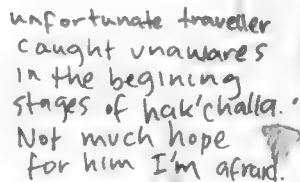 unfortunate traveller
caught unawares
in the begining
stages of hak'challa.
Not much hope
for him I'm afraid.